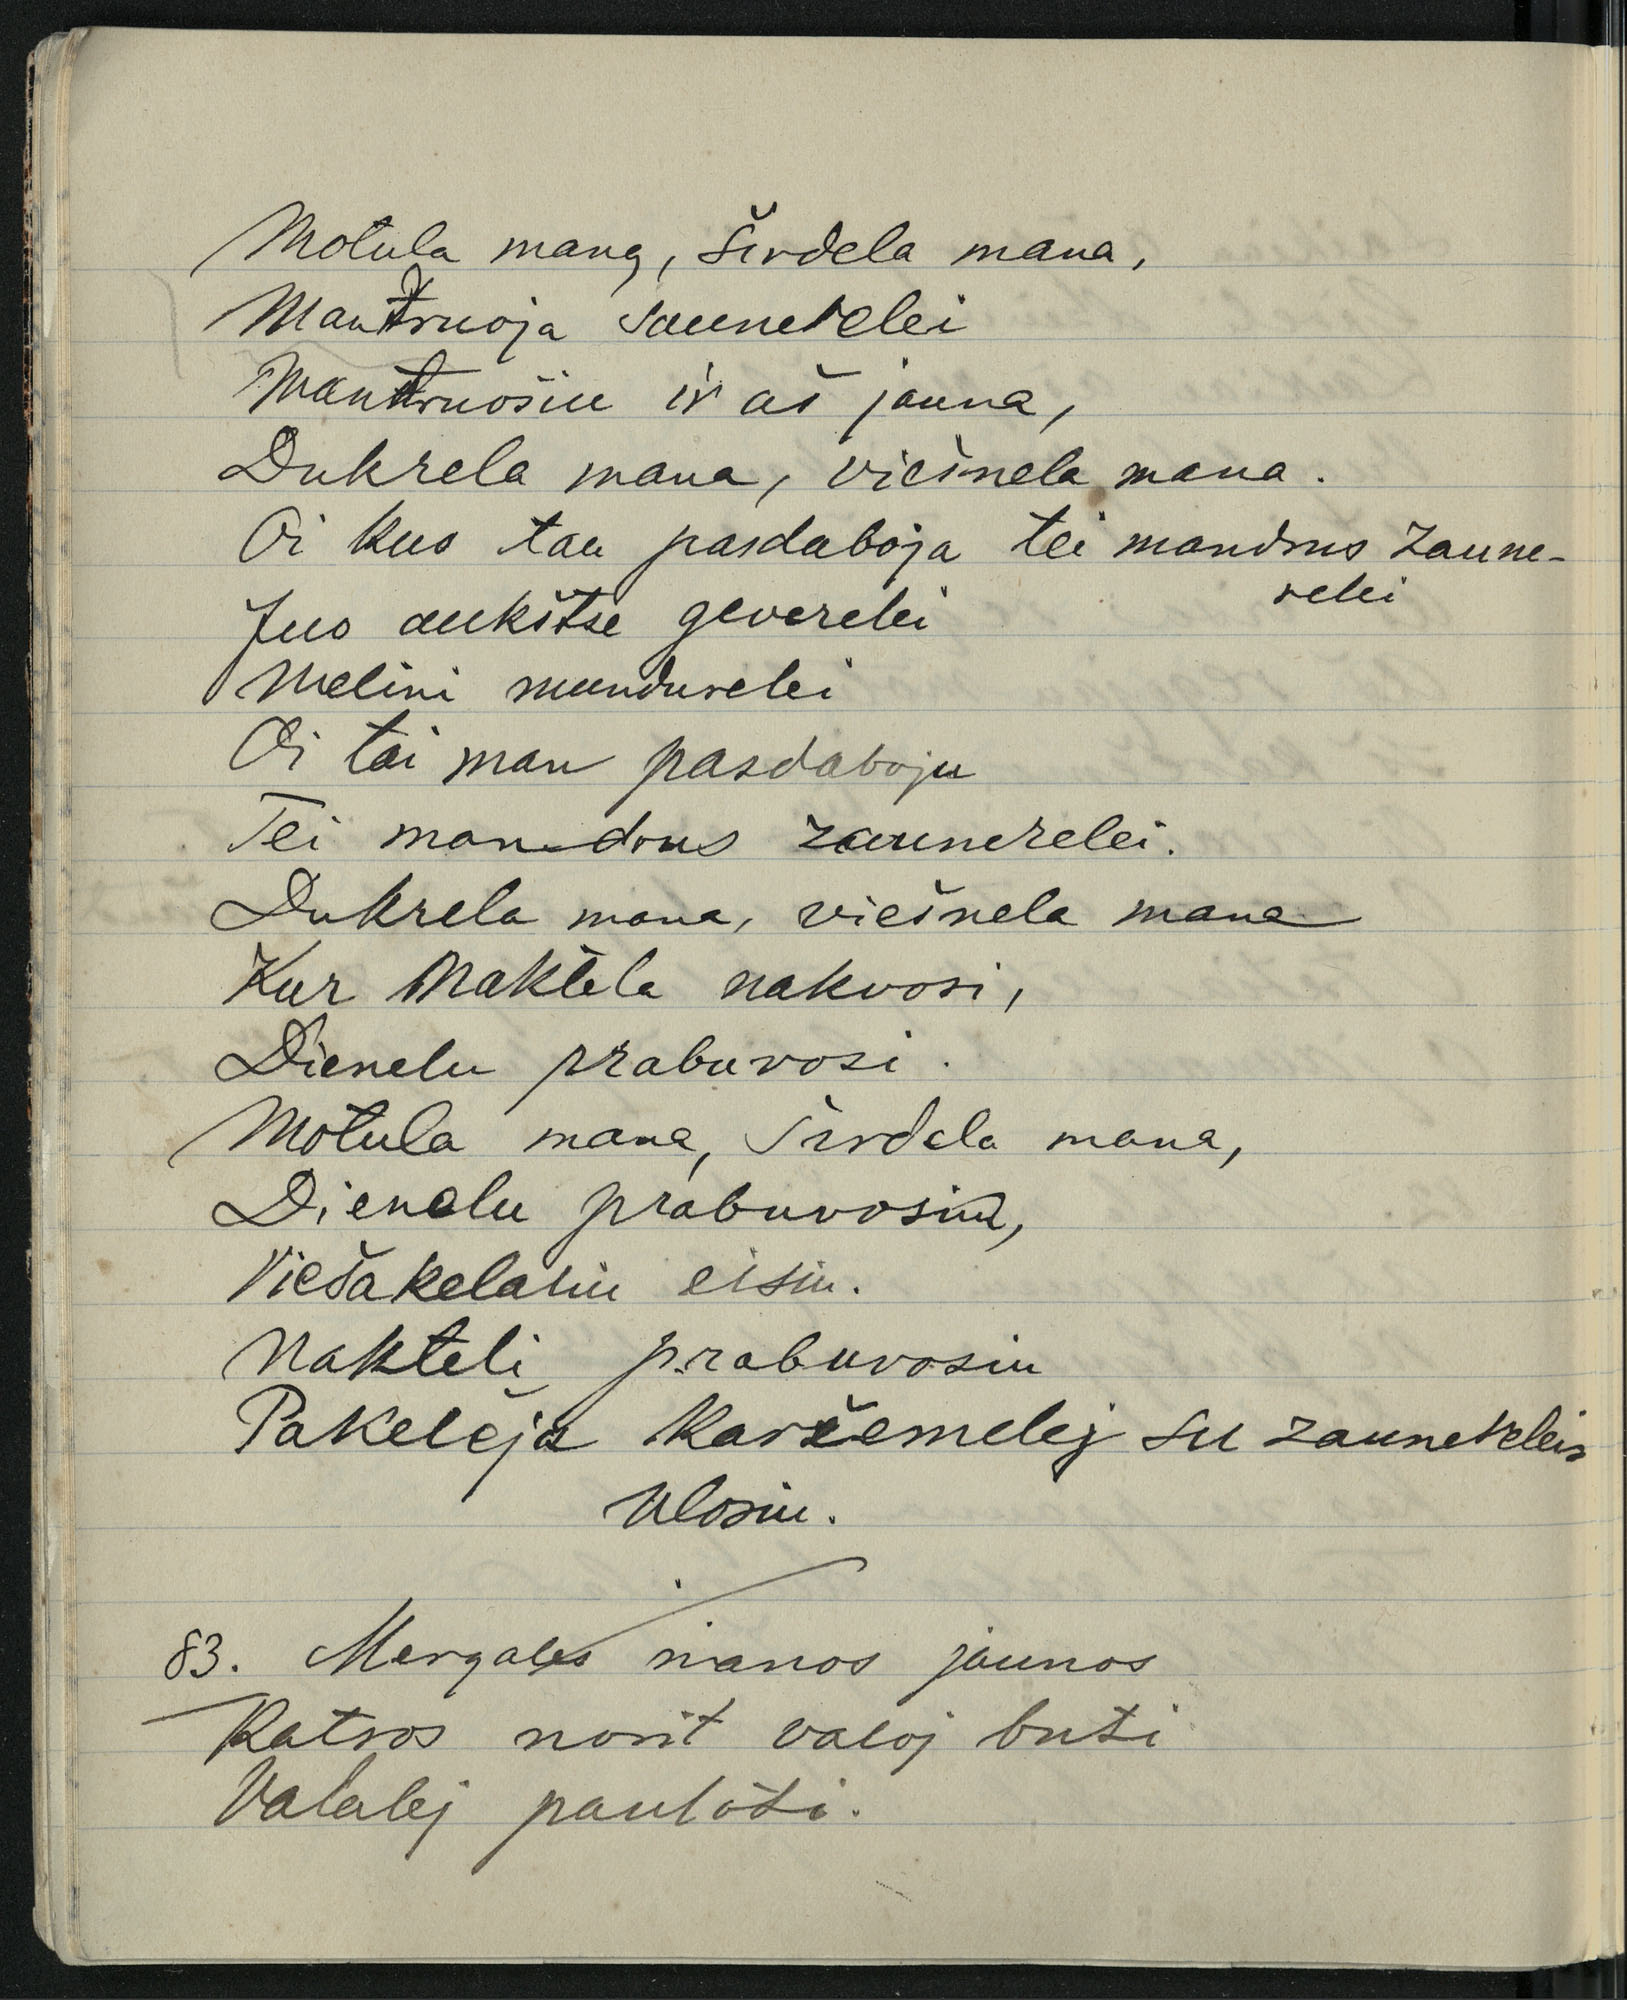 Motula mana, širdela mana,
Mantruoja saunerelei
Mantruosiu ir aš jauna,
Dukrela mana, viešnela mana.
Oi kuo tau pasdaboja tei mandrus zaune-
relei
Juo aukštse geverelei
Melini mundurelei
Oi tai man pasdaboju
Tei mandrus zaunerelei.
Dukrela mana, viešnela mana
Kur Naktela nakvosi,
Dienelu prabuvosi.
Motula mana, širdela mana,
Dienelu prabuvosiu,
Viešakelaliu eisiu.
Nakteli prabuvosiu
Pakelėja karčemelej su zaunereleis
Ulosiu.
83. Mergales manos jaunos
Katros norit valoj buti
Valalej pauloti.